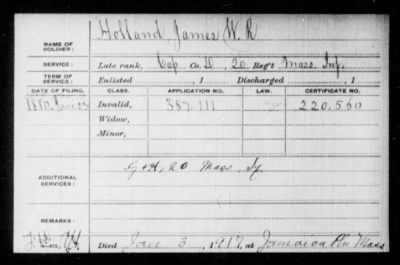 NAME OF SOLDIER: Holland James W. R
SERVICE: Late rank, Cap Co. D 20 Reg't Mass. Inf.
TERM OF SERVICE: Enlisted , 1 Discharged , 1
DATE OF FILING. CLASS. APPLICATION NO. LAW. CERTIFICATE NO.
1880 June 23 Invalid, 387.111 220.560
Widow,
Minor,
ADDITIONAL SERVICES: G+H, 20 Mass. If.
REMARKS:
Died Jan 3, 1917, at Jamaica Pln Mass